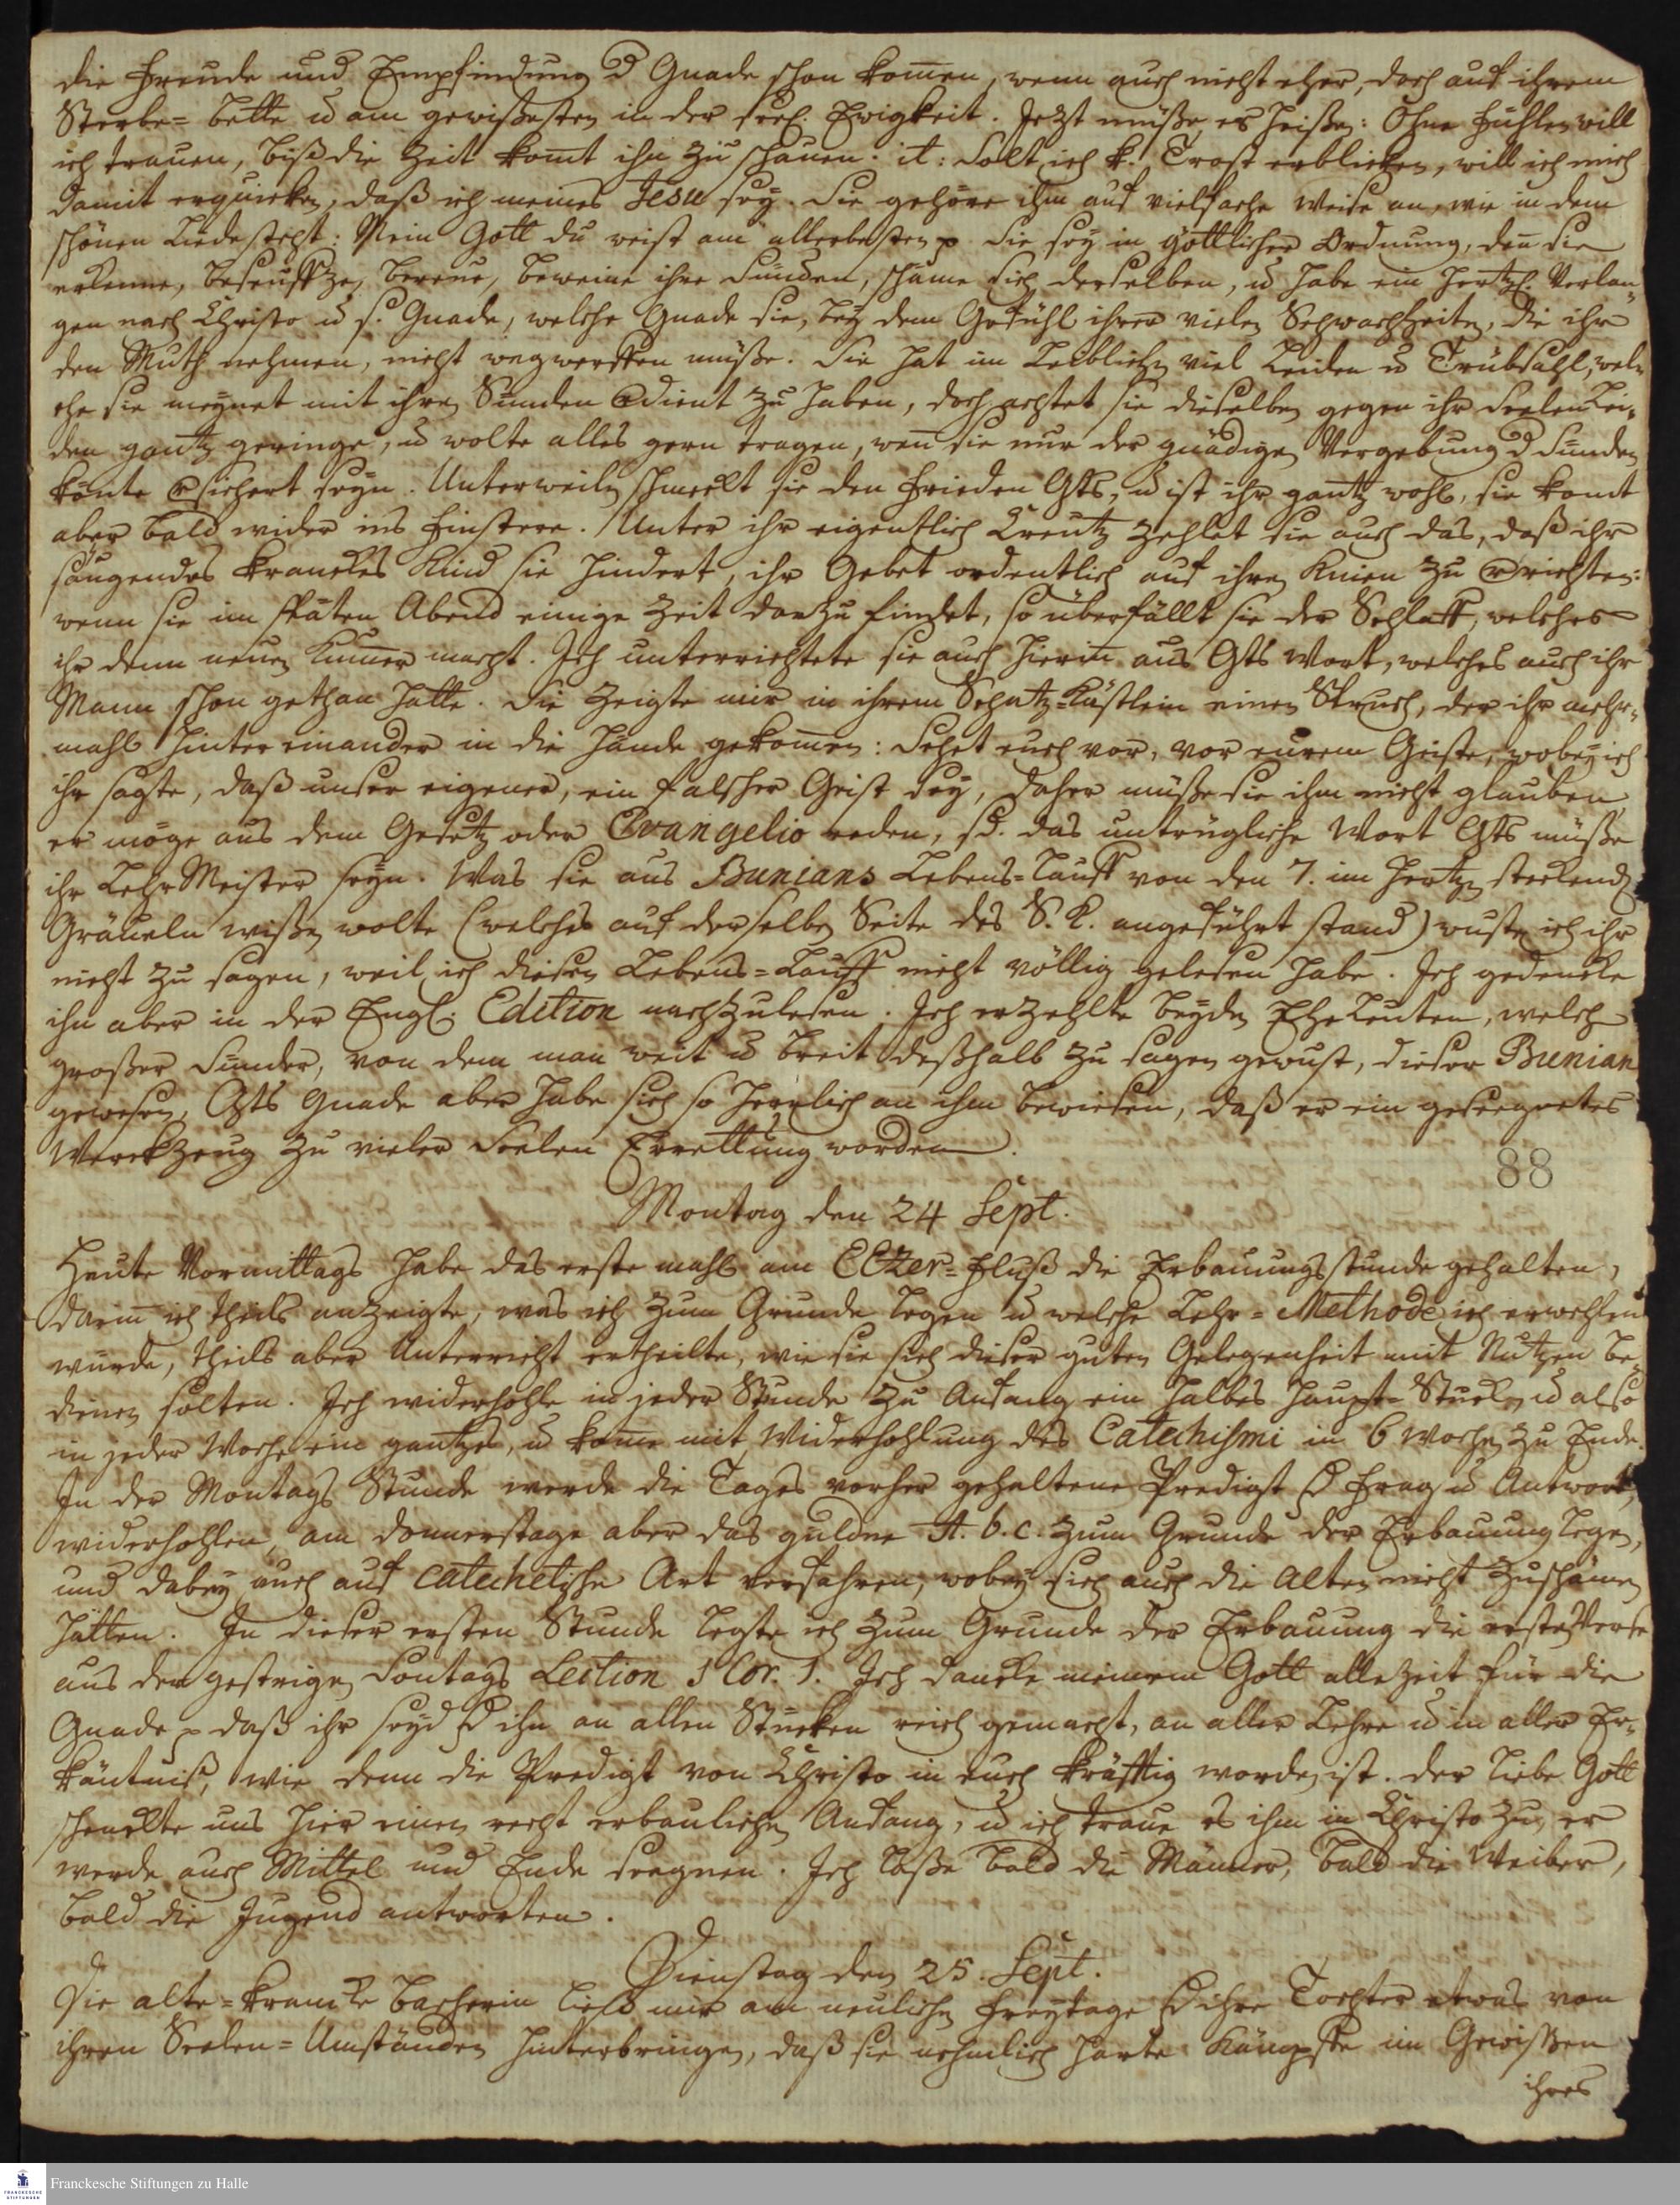 die Freude und Empfindung d Gnade schon kom̄en, wenn auch nicht eher, doch auf ihrem
Sterbe= bette u am gewißesten in der seel. Ewigkeit. Jetzt müße es heißen: Ohne fühlen will
ich trauen, biß die Zeit kom̄t ihn zu schauen. it: Solt ich k. Trost erblicken, will ich mich
damit erquicken, daß ich meines Jesu sey. Sie gehöre ihm auf vielfache Weise an, wie in dem
schönen Liede steht: Mein Gott du weist am allerbesten p. Sie sey in göttlicher Ordnung, den̄ sie
erkenne, beseuffze, bereue, beweine ihre Sünden, schäme sich derselben, u habe ein hertzl. Verlan=
gen nach Christo u s. Gnade, welche Gnade sie, bey dem Gefühl ihrer vielen Schwachheiten, die ihr
den Muth nehmen, nicht wegwerffen müße. Sie hat im Leiblichen viel Leiden u Trübsahl, wel=
che sie meynet mit ihren Sünden verdient zu haben, doch achtet sie dieselben gegen ihr Seelen Lei=
den gantz geringe, u wolte alles gern tragen, wen̄ sie nur der gnädigen Vergebung d Sünden
könte versichert seyn. Unterweilen schmeckt sie den Frieden Gts, u ist ihr gantz wohl, sie komt
aber bald wider ins Finstere. Unter ihr eigentlich Creutz zehlet sie auch das, daß ihr
säugendes kranckes Kind sie hindert, ihr Gebet ordentlich auf ihren Knien zu verrichten:
wenn sie im späten Abend einige Zeit darzu findet, so überfällt sie der Schlaff, welches
ihr denn neuen Kum̄er macht. Ich unterrichtete sie auch hierin̄ aus Gts Wort, welches auch ihr
Mann schon gethan hatte. Sie zeigte mir in ihrem Schatz=Kästlein einen Spruch, der ihr mehr=
mahls hinter einander in die Hände gekom̄en: Sehet euch vor, vor eurem Geiste, wobey ich
ihr sagte, daß unser eigener, ein falscher Geist sey, daher müße sie ihm nicht glauben,
er möge aus dem Gesetz oder Evangelio reden, sd. das untrügliche Wort Gts müße
ihr LehrMeister seyn. Was sie aus Bunians Lebens=Lauff von den 7. im Hertzen steckenden
Gräueln wißen wolte (welches auf derselben Seite des S. K. angeführt stand) wuste ich ihr
nicht zu sagen, weil ich diesen Lebens=Lauff nicht völlig gelesen habe. Ich gedencke
ihn aber in der Engl. Edition nachzulesen. Ich erzehlte beyden EheLeuten, welch
großer Sünder, von dem man weit u breit deßhalb zu sagen gewust, dieser Bunian
gewesen, Gts Gnade aber habe sich so herrlich an ihm bewiesen, daß er ein geseegnetes
Werckzeug zu vieler Seelen Errettung worden.
88
Montag den 24 Sept.
Heute Vormittags habe das erste mahl am Etzer=Fluß die Erbauungsstunde gehalten,
darin̄ ich theils anzeigte, was ich zum Grunde legen u welche Lehr=Methode ich erwehlen
würde, theils aber Unterricht ertheilte, wie sie sich dieser guten Gelegenheit mit Nutzen be=
dienen solten. Ich widerhohle in jeder Stunde zu Anfang ein halbes Haupt=Stück, u also
in jeder Woche ein gantzes, u kom̄e mit Widerhohlung des Catechismi in 6 Wochen zu Ende.
In der Montags Stunde werde die Tages vorher gehaltene Predigt durch Frag u Antwort,
widerhohlen, am Donnerstage aber das güldne A. b. c. zum Grunde der Erbauung legen,
und dabey auch auf catechetische Art verfahren, wobey sich auch die Alten nicht zu schämen
hätten. In dieser ersten Stunde legte ich zum Grunde der Erbauung die ersten Verse
aus der gestrigen Sontags Lection 1 Cor. 1. Ich dancke meinem Gott allezeit für die
Gnade p daß ihr seyd durch ihn an allen Stücken reich gemacht, an aller Lehre u in aller Er=
käntniß, wie denn die Predigt von Christo in euch kräfftig worden ist. Der liebe Gott
schenckte uns hier einen recht erbaulichen Anfang, u ich traue es ihm in Christo zu, er
werde auch Mittel und Ende seegnen. Ich laße bald die Männer, bald die Weiber,
bald die Jugend antworten.
Dienstag den 25. Sept.
Die alte=krancke Bacherin ließ mir am neulichen Freytage durch ihre Tochter etwas von
ihren Seelen=Umständen hinterbringen, daß sie nehmlich harte Kämpffe im Gewißen
ihres
Franckesche Stiftungen zu Halle
FRANCKESCHE
STIFTUNGEN